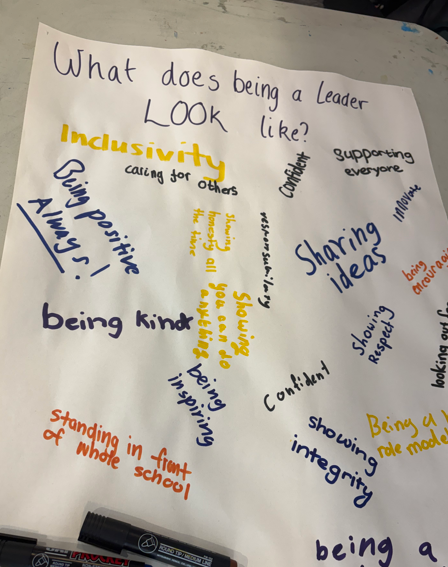 What does being a Leader
LOOK like?
Inclusivity
caring for others
Confident
supporting
everyone
Being positive
Always!
innovate
showing
honesty all
the time
Sharing
ideas
being
showing
you can do
anything
being kind
showing
Respect
being
inspiring
Confident
standing in front
of whole school
showing
integrity
Being a
role model
being a